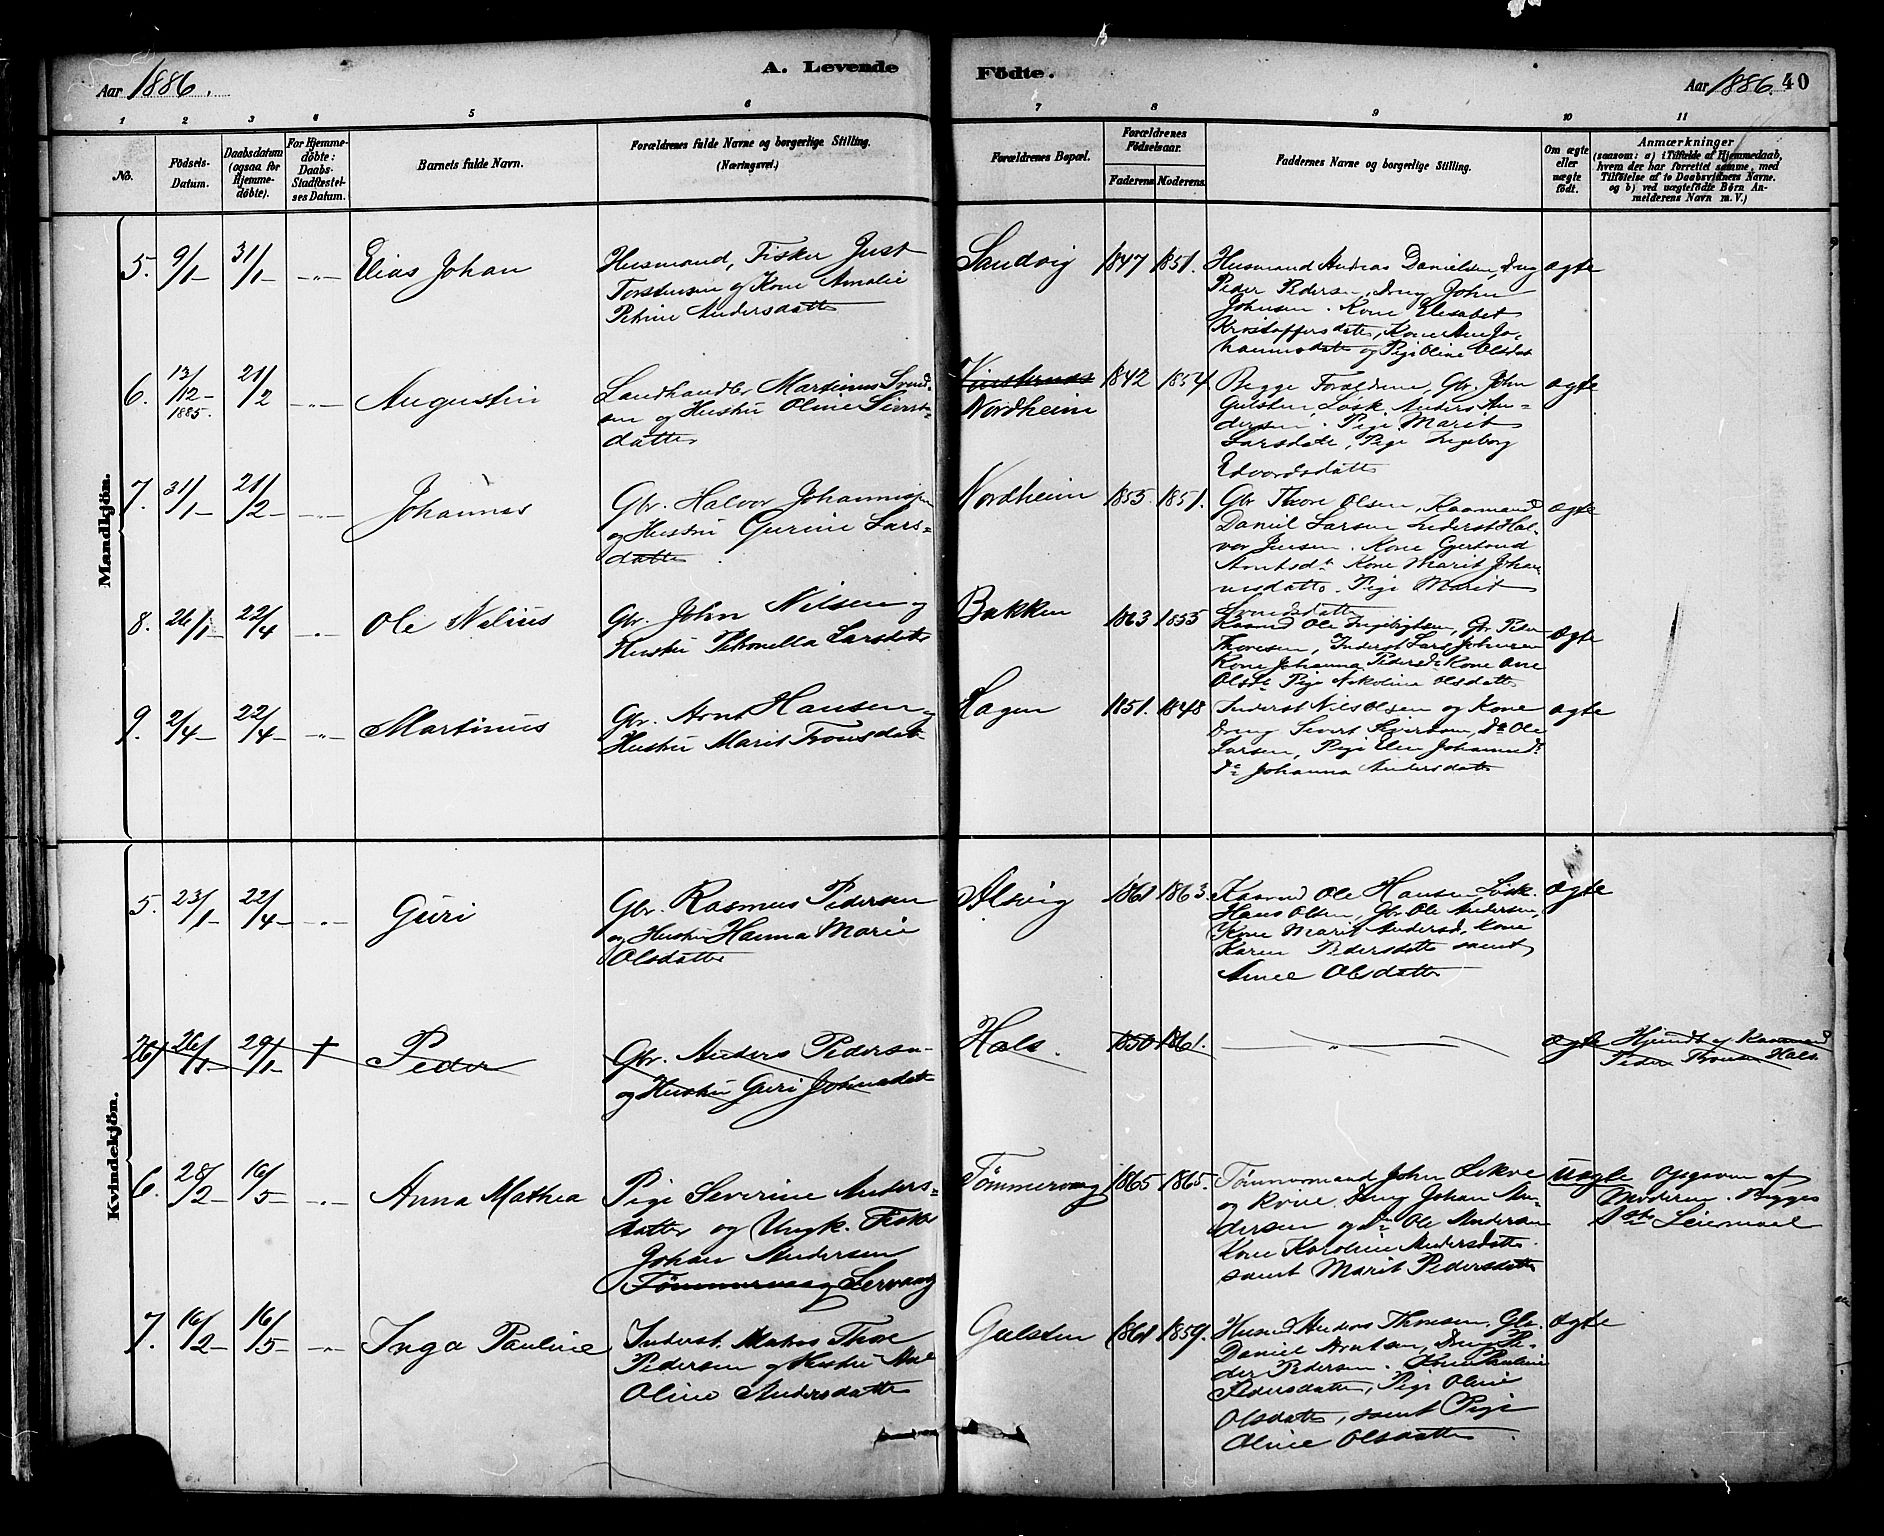 Aar 1886. A. Levende Födte. Aar 1886. 40
1 2 3 4 5 6 7 8 9 10 11
No. Födsels-Datum. Daabsdatum (ogsaa for Hjemmedöbte). For Hjemmedöbte: Daabs-Stadfæstelses Datum. Barnets fulde Navn. Forældrenes fulde Navne og borgerlige Stilling. (Næringsvei.) Forældrenes Bopæl. Forældrenes Födselsaar. Faderens Moderens Faddernes Navne og borgerlige Stilling. Om ægte eller uægte födt. Anmærkninger (saasom: a) i Tilfælde af Hjemmedaab, hvem der har forrettet samme, med Tilföielse af to Daabsvidners Navne, og b) ved uægtefödte Börn Anmelderens Navn m. V.)
Mandkjön.
5. 9/1 31/1 -"- Elias Johan
Husmand, Fisker Just
Torstensen og Kone Amalie
Petrine Andersdatter
Sandvig 1847 1851.
Husmand Andreas Danielsen, Dreng
Peder Pedersen, Dreng John
Johnsen. Kone Elesabet
Kristoffersdatter, Kone Ane Jo-
hannesdatter og Pige Oline Olsdat
ægte
6. 13/12 1885. 21/2 -"- Augustin
Landhandler Martinus Svend-
sen og Hustru Oline Siverts-
datter
Nordheim 1842 1854.
Begge Forældrene, Gbr. John
Gulsten, Løsk. Anders An-
dersen. Pige Marit
Larsdatter, Pige Ingeborg
Edvardsdatter
ægte
7. 31/1 21/2 -"- Johannes
Gbr. Halvor Johannessen
og Hustru Gurine Lars-
datter
Nordheim 1853. 1851.
Gbr Thore Olsen, Kaarmand
Daniel Larsen Inderst Hal-
vor Jensen. Kone Gjertrud
Arntsdt Kone Marit Johan
nesdatter. Pige Marit
Svendsdatter
ægte
8. 26/1 22/4 -"- Ole Nilius
Gbr. John Nilsen og
Hustru Petronella Larsdatter
Bakken 1863 1855
Kaarmd Ole Ingebrigtsen, Gbr Peder
Thoresen, Inderst Lars Johnsen
Kone Johanna Pedersdt Kone Ane
Olsdt Pige Nikoline Olsdatter
ægte
9. 2/4 22/4 -"- Martinus
Gbr. Arnt Hansen og
Hustru Marit Tronsdat
Hagen 1851. 1848
Inderst Nils Olsen og Kone
Dreng Sivert Sivertsen, Do Ole
Larsen, Pige Elen Johannesdt
Do Johanna Andersdatter
ægte
Kvindekjön.
5. 23/1 22/4 -"- Guri
Gbr. Rasmus Pedersen
og Hustru Hanna Marie
Olsdatter
Alsvig 1861 1863.
Kaarmd Ole Hansen, Løsk.
Hans Olsen, Gbr Ole Andersen,
Kone Marit Andersd, Kone
Karen Pedersdatter samt
Anne Olsdatter
ægte
26/1 29/1 + Peder
Gbr. Anders Pedersen
og Hustru Guri Johnsdatter
Hals. 1850 1861. — " —
ægte
Hjemdt af Kaarmand
Peder Thonsen Hals
6. 28/2 16/5 -"- Anna Mathea
Pige Severine Anders-
datter og Ungk. Fisker
Johan Andersen
Tømmervaag Lervaag
Tømmervaag 1865 1865.
Tømmermand John Lekve
og Kvinde, Dreng Johan An-
dersen og Do Ole Andersen
Kone Karoline Andersdatter
samt Marit Pedersdatter
Uægte
Opgaven af
Moderen. Begges
1ste Leiermaal
7. 16/2 16/5 -"- Inga Pauline
Inderst. Matros Thore
Pedersen og Hustru Ane
Oline Andersdatter
Gulsten 1861 1859.
Husmd Anders Thoresen, Gbr.
Daniel Arntsen, Dreng Pe-
der Pedersen. Kone Pauline
Pedersdatter, Pige Oline
Olsdatter, samt Pige
Oline Olsdatter.
ægte